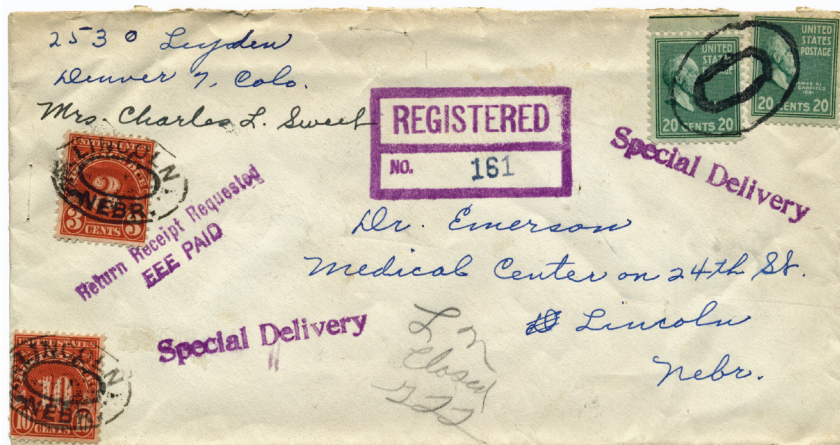 2530 Leyden
Denver 7, Colo.
Mrs. Charles L. Sweet
REGISTERED
NO. 161
UNITED STATES POSTAGE
20 CENTS 20
UNITED STATES POSTAGE
JAMES A. GARFIELD
20 CENTS 20
Special Delivery
LINCOLN
NEBR.
3 CENTS
Return Receipt Requested
FEE PAID
Dr. Emerson
Medical Center on 24th St.
Lincoln
Nebr.
Special Delivery
Closed
LINCOLN
NEBR
10 CENTS 10